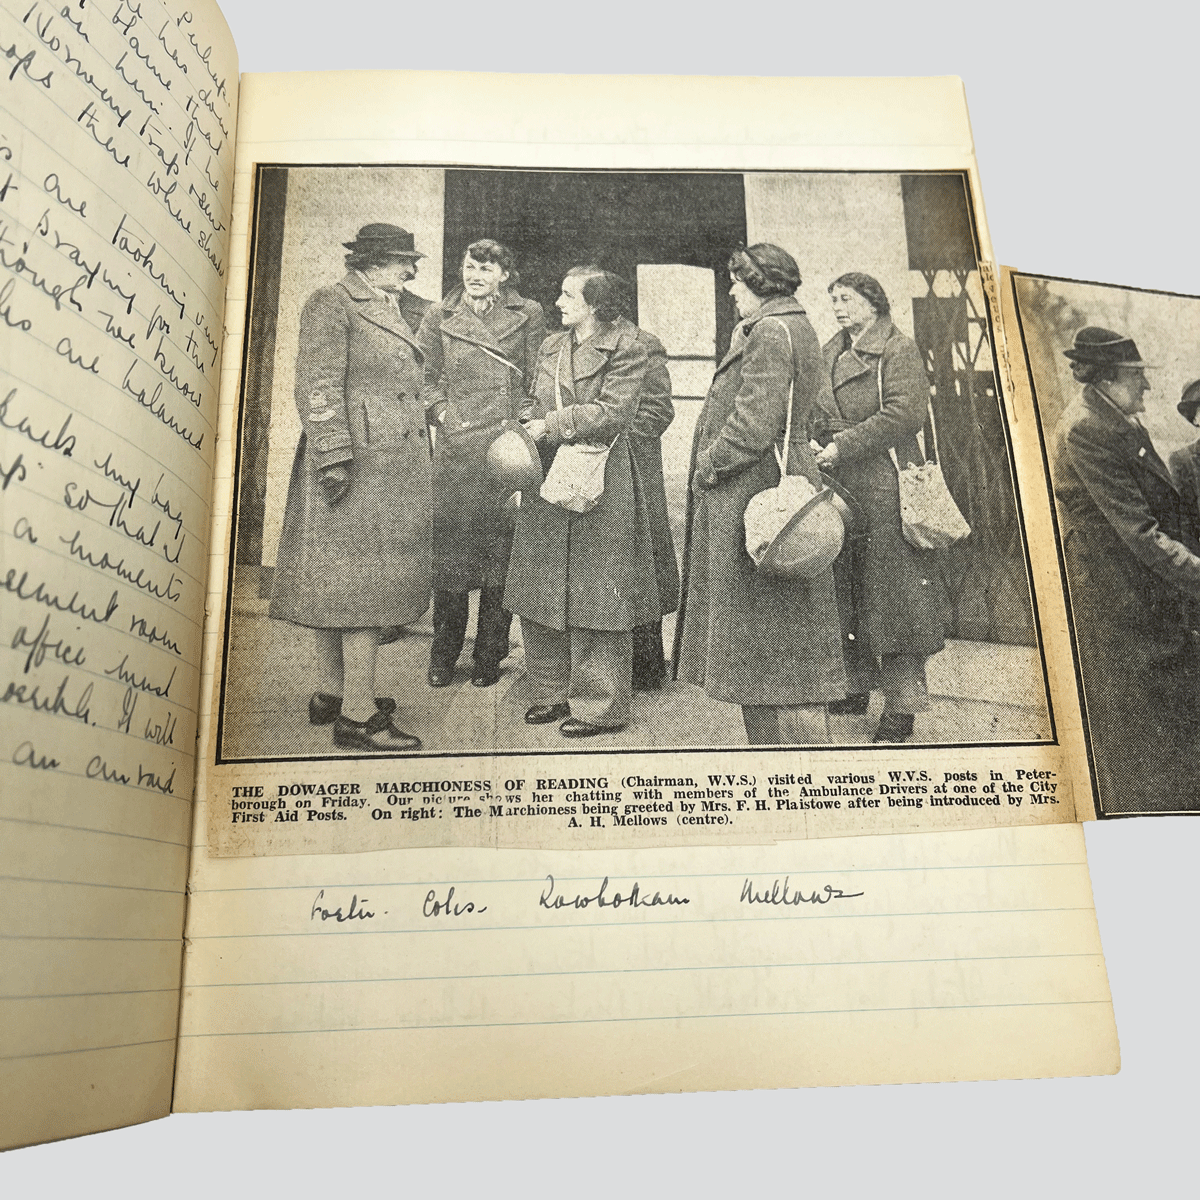 has done
blame that
on him. If he
Norway trap
there where
are looking very
praying for the
though we know
are balanced
my bag
so that it
a moments
room
office must
It will
an air raid
THE DOWAGER MARCHIONESS OF READING (Chairman, W.V.S.) visited various W.V.S. posts in Peter-
borough on Friday. Our picture shows her chatting with members of the Ambulance Drivers at one of the City
First Aid Posts. On right: The Marchioness being greeted by Mrs. F. H. Plaistowe after being introduced by Mrs.
A. H. Mellows (centre).
Coles. Rowbotham Mellows